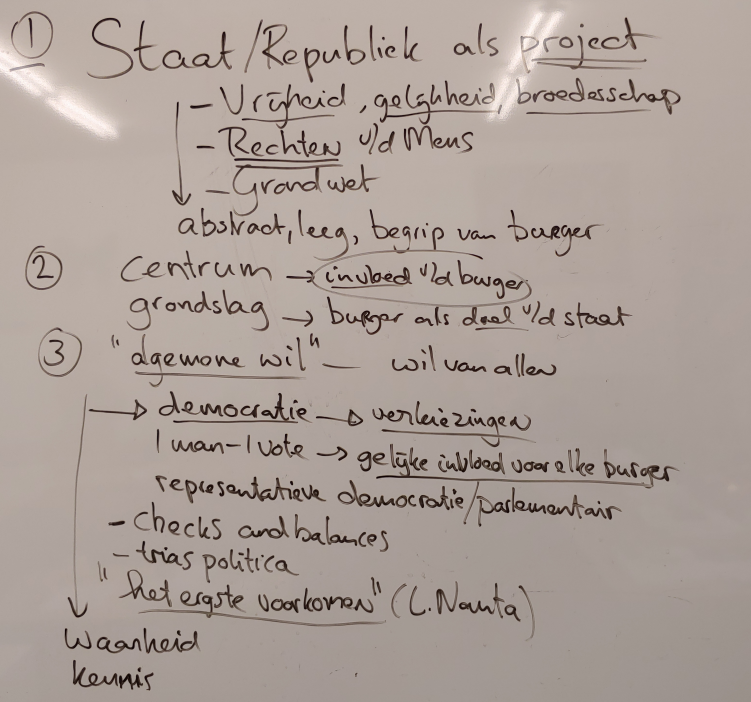 ① Staat/Republiek als project
- Vrijheid, gelijkheid, broederschap
- Rechten v/d Mens
- Grondwet
abstract, leeg, begrip van burger
② Centrum → invloed v/d burger
grondslag → burger als doel v/d staat
③ "algemene wil" — wil van allen
→ democratie → verkiezingen
1 man-1 vote → gelijke invloed voor elke burger
representatieve democratie/parlementair
- Checks and balances
- trias politica
"het ergste voorkomen" (L. Nauta)
Waarheid
kennis